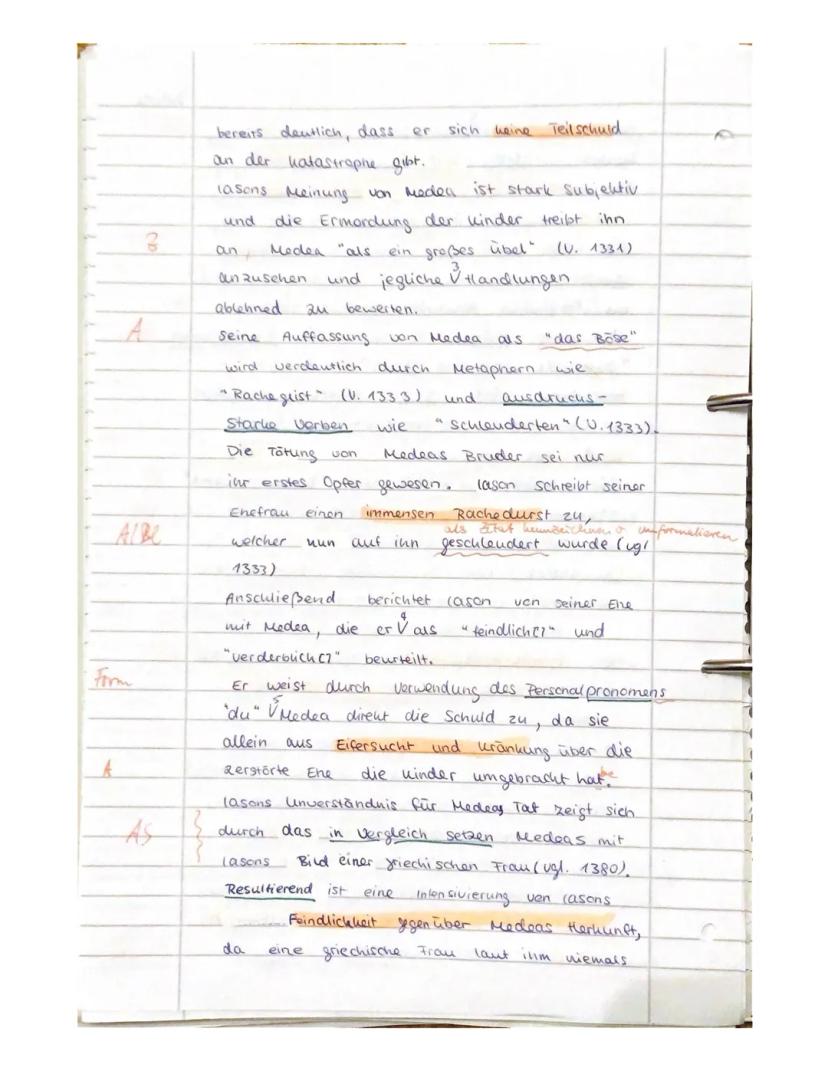 bereits deutlich, dass er sich keine Teilschuld
an der Katastrophe gibt.
Iasons Meinung von Medea ist stark subjektiv
und die Ermordung der Kinder treibt ihn
Z an, Medea "als ein großes Übel" (V. 1331)
3
anzusehen und jegliche V Handlungen
ablehned zu bewerten.
A Seine Auffassung von Medea als "das Böse"
wird verdeutlich durch Metaphern wie
"Rachegeist" (V. 1333) und ausdrucks-
starke Verben wie "schleuderten" (V. 1333).
Die Tötung von Medeas Bruder sei nur
ihr erstes Opfer gewesen. Iason schreibt seiner
Ehefrau einen immensen Rachedurst zu,
als Zitat kennzeichnen o. umformulieren
A/Bl welcher nun auf ihn geschleudert wurde (vgl
1333)
Anschließend berichtet Iason von seiner Ehe
4
mit Medea, die er V als "feindlich[]" und
"verderblich[]" beurteilt.
Form Er weist durch Verwendung des Personalpronomens
5
"du" V Medea direkt die Schuld zu, da sie
allein aus Eifersucht und Kränkung über die
A zerstörte Ehe die Kinder umgebracht habe.
Iasons Unverständnis für Medeas Tat zeigt sich
AS durch das in Vergleich setzen Medeas mit
Iasons Bild einer griechischen Frau (vgl. 1380).
Resultierend ist eine Intensivierung von Iasons
Feindlichkeit gegenüber Medeas Herkunft,
da eine griechische Frau laut ihm niemals